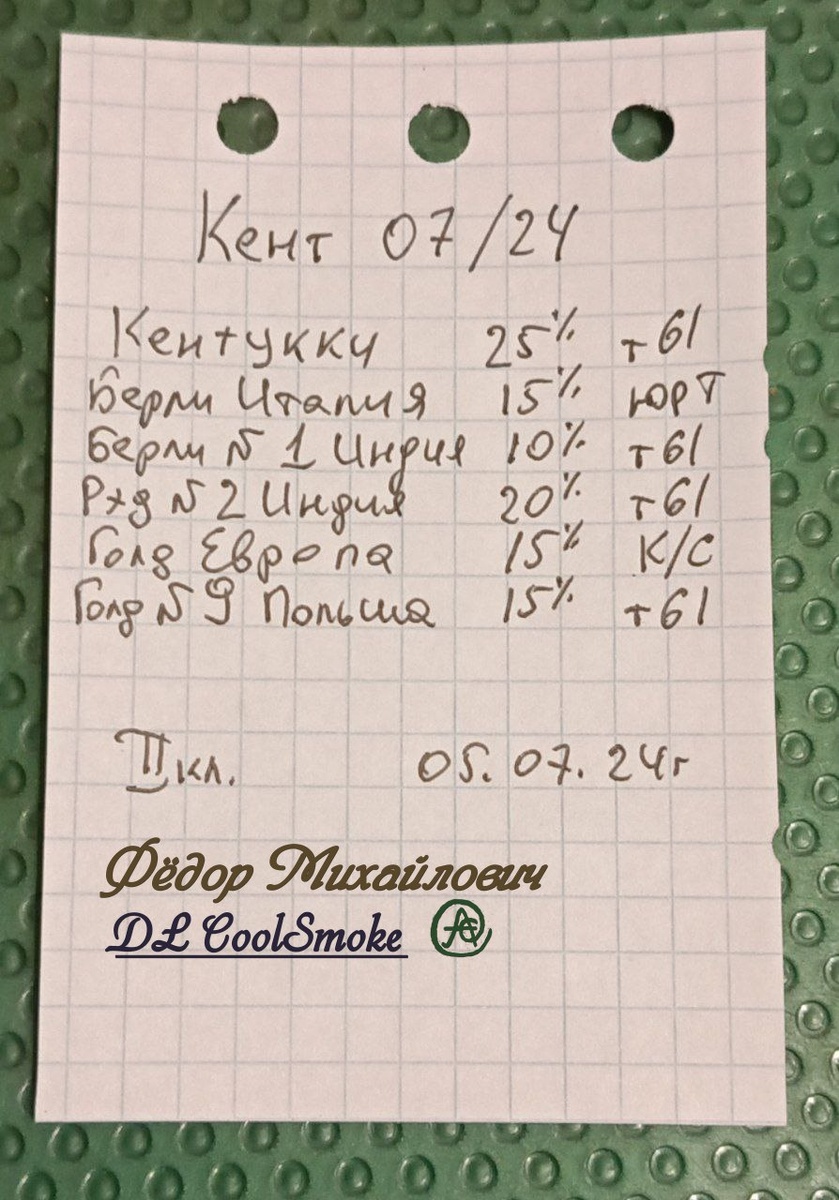 Кент 07/24
Кентукки 25% т61
Берли Италия 15% ЮРТ
Берли N 1 Индия 10% т61
Ртд N 2 Индия 20% т61
Голд Европа 15% К/С
Голд N 9 Польша 15% т61
II кл. 05.07.24г
Фёдор Михайлович
DL CoolSmoke